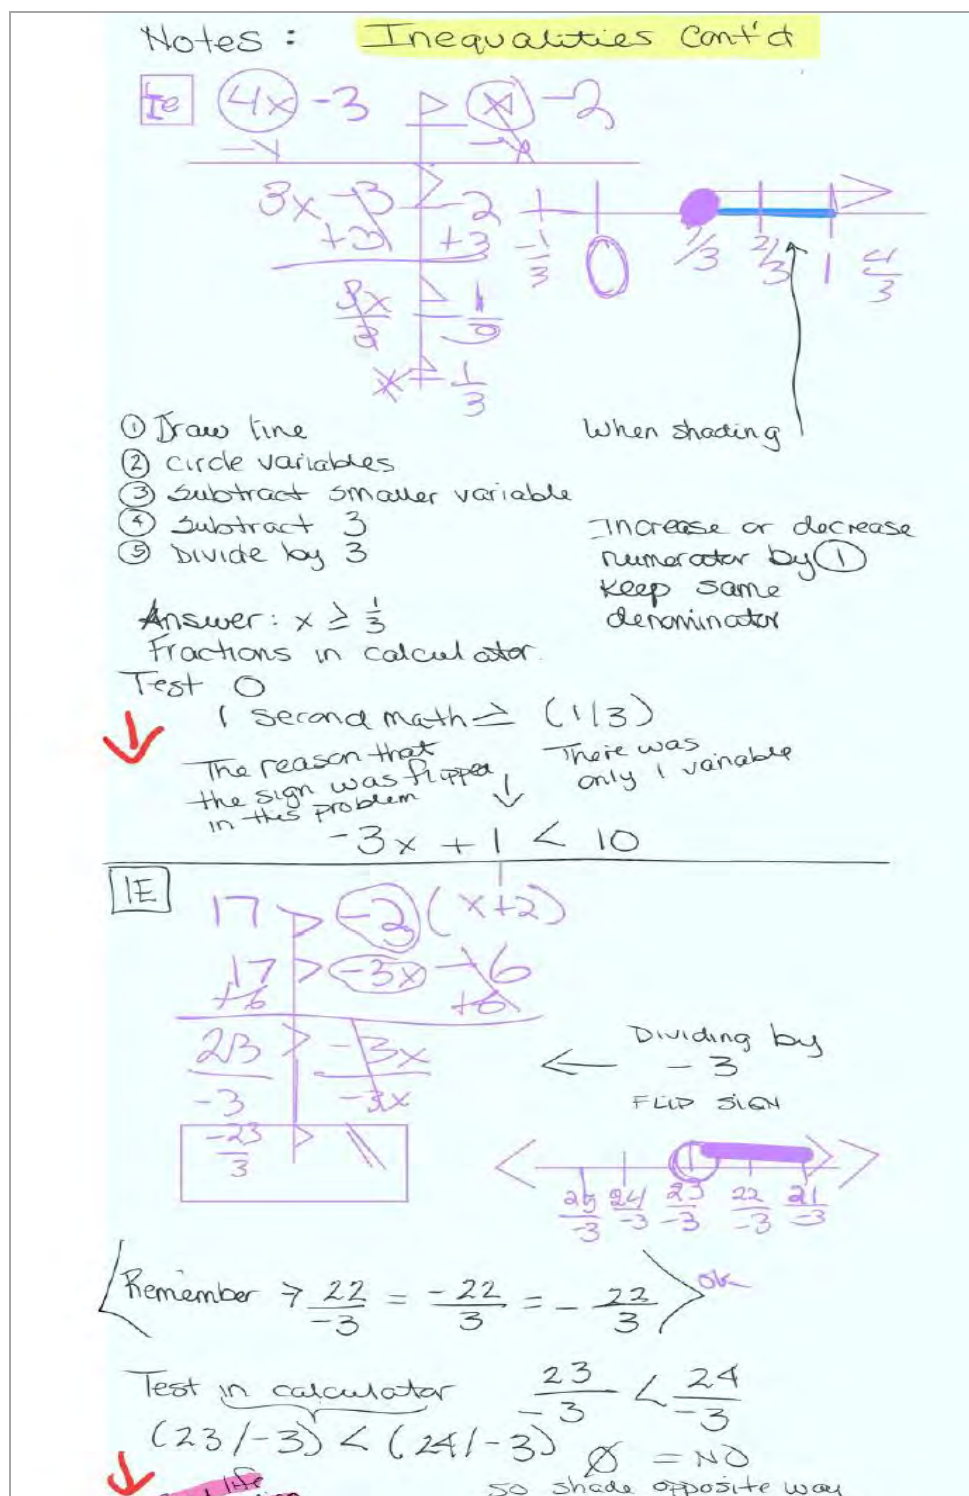 Notes : Inequalities Cont'd
Ie 4x -3 ≥ x -2
-x -x
3x -3 ≥ -2
+3 +3
3x ≥ 1
3
x ≥ 1/3
-1/3 0 1/3 2/3 1 4/3
① Draw line
② circle variables
③ subtract smaller variable
④ subtract 3
⑤ Divide by 3
When shading
Increase or decrease
numerator by ①
keep same
denominator
Answer: x ≥ 1/3
Fractions in calculator.
Test 0
1 second math ≥ (1/3)
The reason that
the sign was flipped
in this problem
There was
only 1 variable
-3x + 1 < 10
IE
17 > -3 (x+2)
17 > -3x -6
+6 +6
23 > -3x
-3 -3x
-23/3
Dividing by
-3
FLIP SIGN
25/-3 24/-3 23/-3 22/-3 21/-3
Remember → 22/-3 = -22/3 = - 22/3 ok
Test in calculator 23/-3 < 24/-3
(23/-3) < (24/-3) Ø = NO
so shade opposite way
life